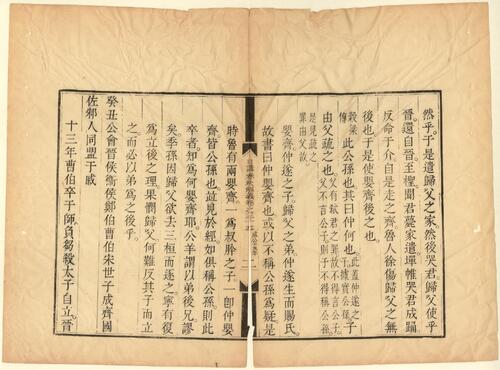 然乎于是遣歸父之家然後哭君歸父使乎
晉還自晉至檉聞君薨家遣墠帷哭君成踊
反命于介自是走之齊魯人徐傷歸父之無
後也于是使嬰齊後之也
穀梁傳
此公孫也其曰仲何也
此蓋仲遂之子據實公孫
子
由父疏之也
父有弑君之罪故不得言公子
父不言公子則子不得稱公孫
是見疏之
罪由父故
嬰齊仲遂之子歸父之弟仲遂生而賜氏
故書曰仲嬰齊也或以不稱公孫爲疑是
時魯有兩嬰齊一爲叔肸之子一卽仲嬰
齊皆公孫也竝見於經如俱稱公孫則此
卒者知爲何嬰齊耶公羊謂以弟後兄謬
矣季孫因歸父欲去三桓而逐之寧有復
爲立後之理果憫歸父何難反其子而立
之而必以弟爲之後乎
癸丑公會晉侯衞侯鄭伯曹伯宋世子成齊國
佐邾人同盟于戚
十三年曹伯卒于師負芻殺太子自立晉